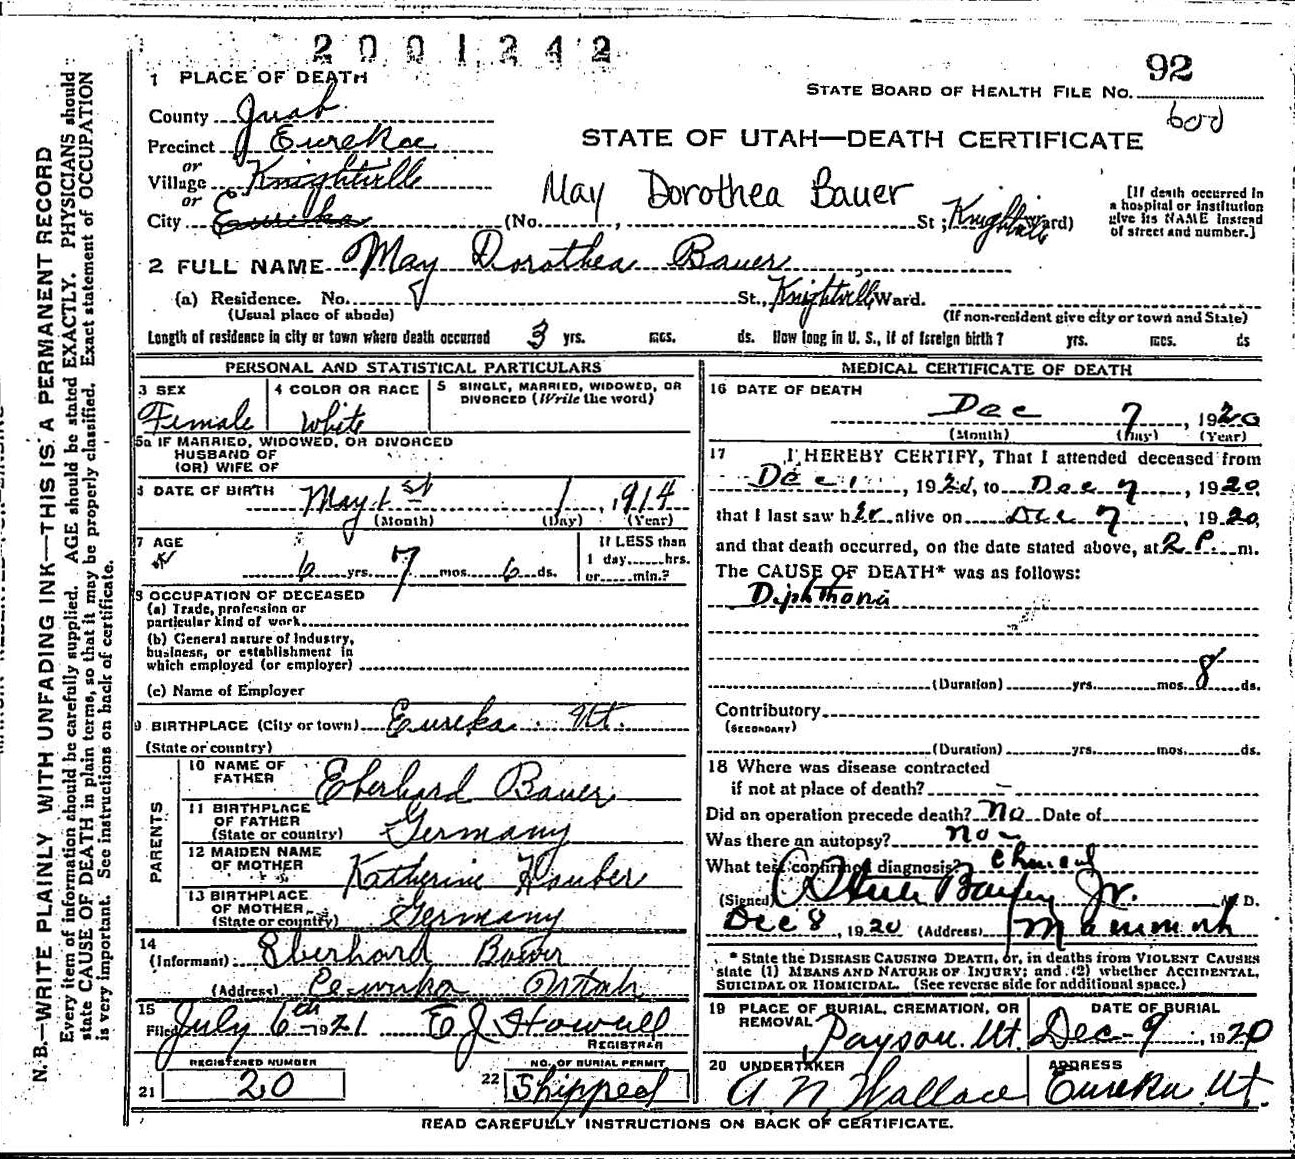 2001242
92
1 PLACE OF DEATH
STATE BOARD OF HEALTH FILE NO.
600
County Juab
STATE OF UTAH—DEATH CERTIFICATE
Precinct Eureka
or
Village Knightville
May Dorothea Bauer
or
City Eureka (No. , St; Knightville Ward)
[If death occurred in
a hospital or institution
give its NAME instead
of street and number.]
2 FULL NAME May Dorothea Bauer
(a) Residence. No. St., Knightville Ward.
(Usual place of abode) (If non-resident give city or town and State)
Length of residence in city or town where death occurred 3 yrs. mos. ds. How long in U. S., if of foreign birth? yrs. mos. ds
PERSONAL AND STATISTICAL PARTICULARS
3 SEX
Female
4 COLOR OR RACE
White
5 SINGLE, MARRIED, WIDOWED, OR
DIVORCED (Write the word)
5a IF MARRIED, WIDOWED, OR DIVORCED
HUSBAND OF
(OR) WIFE OF
6 DATE OF BIRTH May 1st 1, 1914
(Month) (Day) (Year)
7 AGE
6 yrs. 7 mos. 6 ds.
If LESS than
1 day......hrs.
or......min.?
8 OCCUPATION OF DECEASED
(a) Trade, profession or
particular kind of work
(b) General nature of Industry,
business, or establishment in
which employed (or employer)
(c) Name of Employer
9 BIRTHPLACE (City or town) Eureka Ut.
(State or country)
PARENTS
10 NAME OF
FATHER Eberhard Bauer
11 BIRTHPLACE
OF FATHER
(State or country) Germany
12 MAIDEN NAME
OF MOTHER Katherine Hauber
13 BIRTHPLACE
OF MOTHER
(State or country) Germany
14
(Informant) Eberhard Bauer
(Address) Eureka Utah
15
Filed July 6th 1921 E J Howell
REGISTRAR
REGISTERED NUMBER
21 20
NO. OF BURIAL PERMIT
22 Shipped
MEDICAL CERTIFICATE OF DEATH
16 DATE OF DEATH
Dec 7, 1920
(Month) (Day) (Year)
17 I HEREBY CERTIFY, That I attended deceased from
Dec 1, 1920, to Dec 7, 1920,
that I last saw her alive on Dec 7, 1920,
and that death occurred, on the date stated above, at 2 P. m.
The CAUSE OF DEATH* was as follows:
Diphtheria
(Duration) yrs. mos. 8 ds.
Contributory
(SECONDARY)
(Duration) yrs. mos. ds.
18 Where was disease contracted
if not at place of death? —
Did an operation precede death? No Date of
Was there an autopsy? No
What test confirmed diagnosis? Clinical
(Signed) Bailey Jr. M. D.
Dec 8, 1920 (Address) Mammoth
* State the DISEASE CAUSING DEATH, or, in deaths from VIOLENT CAUSES
state (1) MEANS AND NATURE OF INJURY; and (2) whether ACCIDENTAL,
SUICIDAL OR HOMICIDAL. (See reverse side for additional space.)
19 PLACE OF BURIAL, CREMATION, OR
REMOVAL Payson. Ut.
DATE OF BURIAL
Dec-9, 1920
20 UNDERTAKER
A N Wallace
ADDRESS
Eureka Ut.
READ CAREFULLY INSTRUCTIONS ON BACK OF CERTIFICATE.
N. B.—WRITE PLAINLY WITH UNFADING INK—THIS IS A PERMANENT RECORD
Every item of information should be carefully supplied. AGE should be stated EXACTLY. PHYSICIANS should
state CAUSE OF DEATH in plain terms, so that it may be properly classified. Exact statement of OCCUPATION
is very important. See instructions on back of certificate.